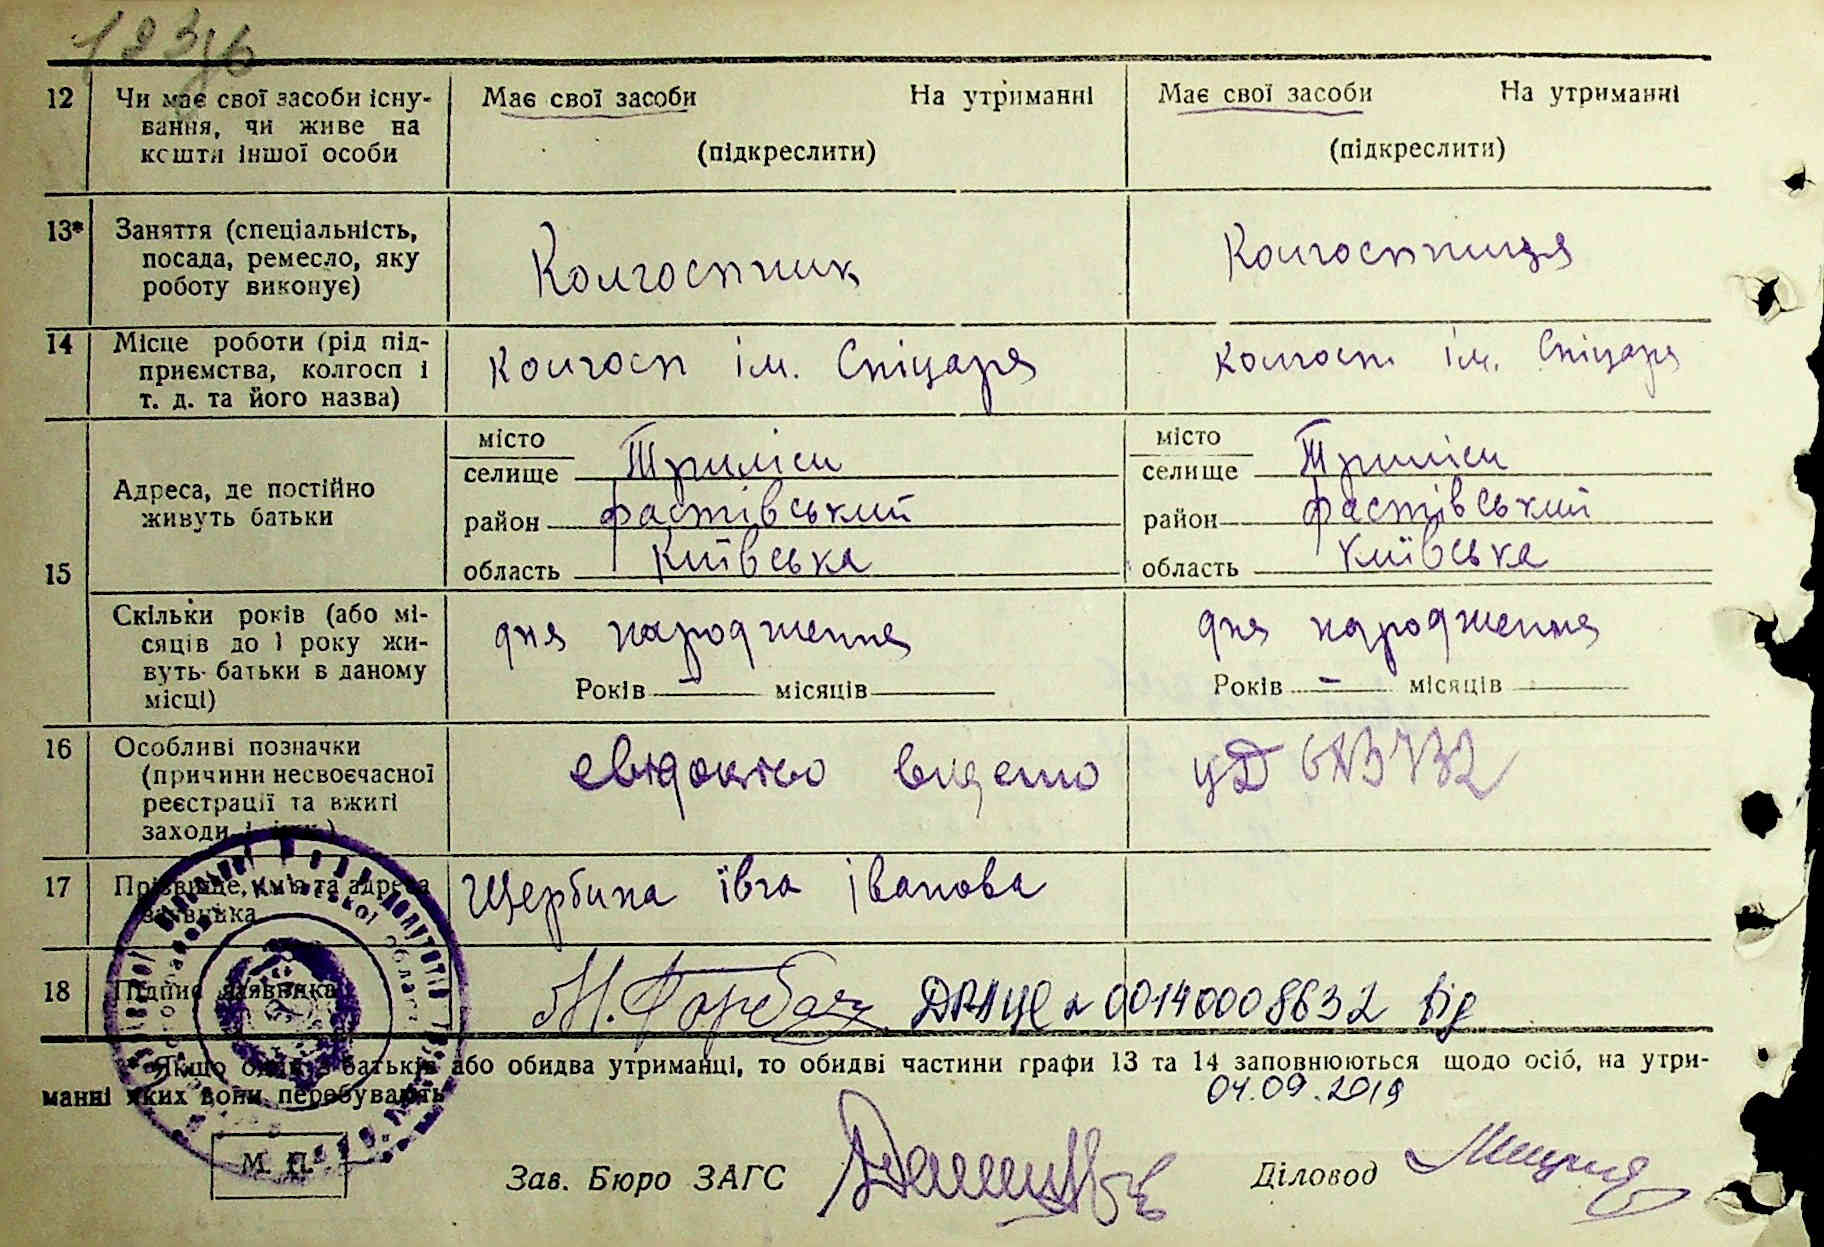 12 Чи має свої засоби існу-
вання, чи живе на
кошти іншої особи
Має свої засоби На утриманні
(підкреслити)
Має свої засоби На утриманні
(підкреслити)
13* Заняття (спеціальність,
посада, ремесло, яку
роботу виконує)
Колгоспник
Колгоспниця
14 Місце роботи (рід під-
приємства, колгосп і
т. д. та його назва)
колгосп ім. Спіцаря
колгосп ім. Спіцаря
15
Адреса, де постійно
живуть батьки
місто
селище Триліси
район фастівський
область київська
місто
селище Триліси
район фастівський
область київська
Скільки років (або мі-
сяців до 1 року жи-
вуть батьки в даному
місці)
дня народження
Років – місяців
дня народження
Років – місяців
16 Особливі позначки
(причини несвоєчасної
реєстрації та вжиті
заходи
свідоцтво видано
17 Прізвище, ім'я та адреса
заявника
Щербина Івга Іванова
18 Підпис заявника
М. Горбач ДРАЦС 00140008632 від
Якщо один з батьків або обидва утриманці, то обидві частини графи 13 та 14 заповнюються щодо осіб, на утри-
манні яких вони перебувають
04.09.2019
М. П.
Зав. Бюро ЗАГС
Діловод